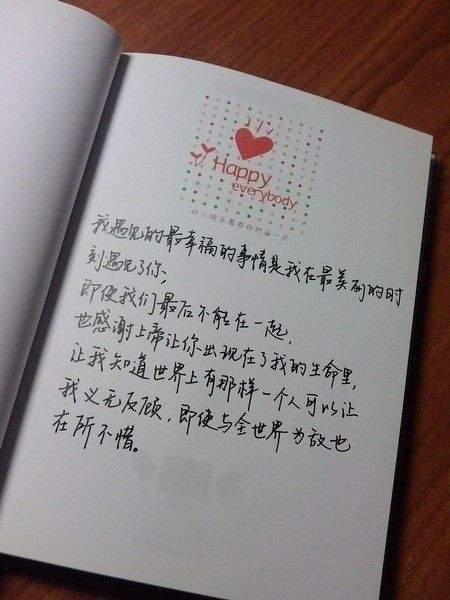 Happy
everybody
开心快乐着有你的每一天
我遇见的最幸福的事情是我在最美丽的时
刻遇见了你,
即使我们最后不能在一起,
也感谢上帝让你出现在了我的生命里,
让我知道世界上有那样一个人可以让
我义无反顾,即使与全世界为敌也
在所不惜。